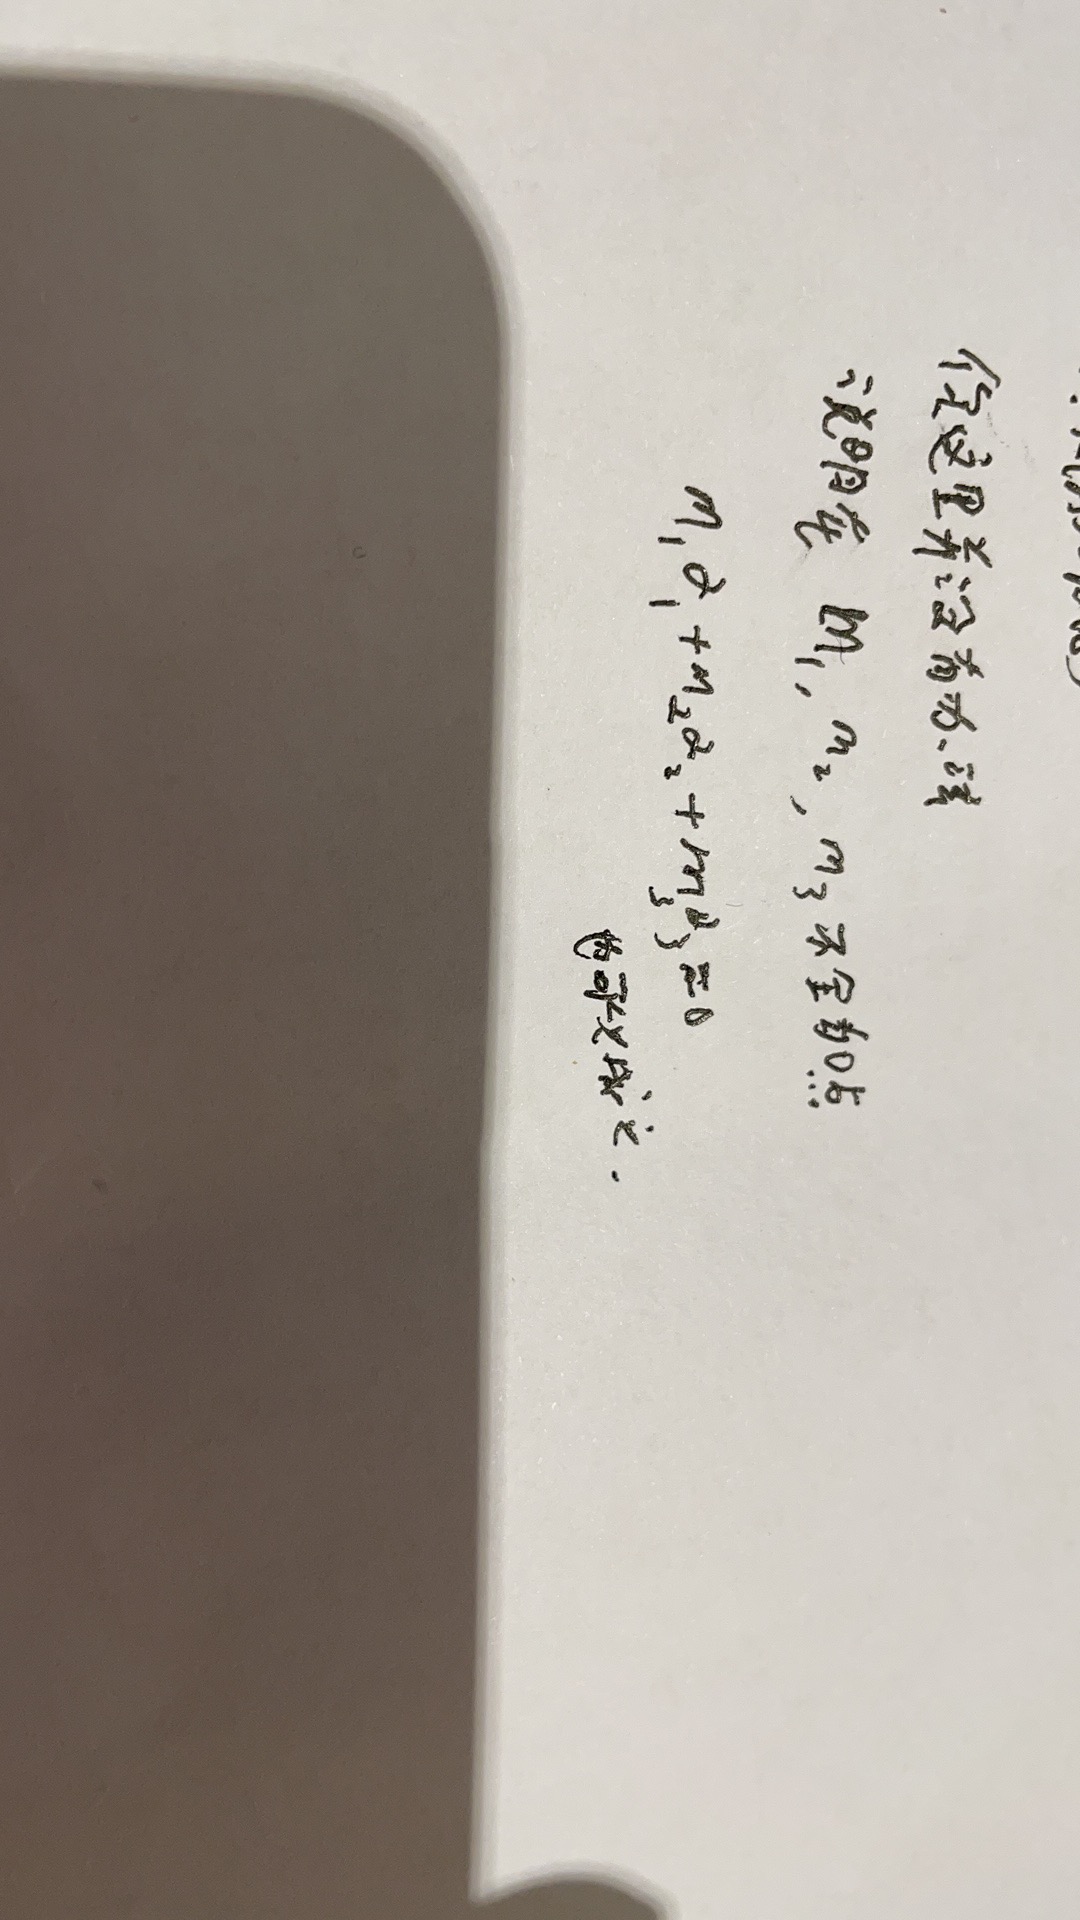 但这里并没有办法
说明在 m₁, m₂, m₃ 不全为0时
m₁α₁+m₂α₂+m₃α₃=0
也可以成立.